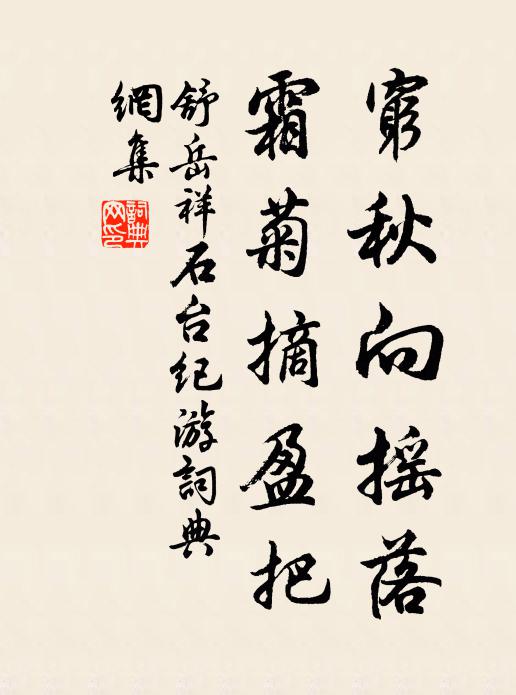 窮秋向摇落
霜菊摘盈把
舒岳祥石台纪游詞典
網集
詞典网印